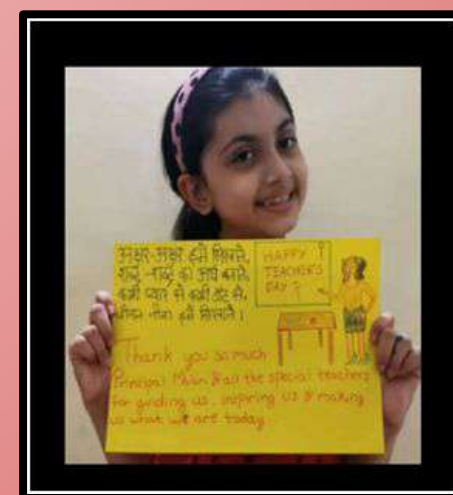 अक्षर-अक्षर हमें सिखाते,
शब्द-शब्द का अर्थ बताते,
कभी प्यार से कभी डांट से,
जीवन जीना हमें सिखाते।
HAPPY
TEACHER'S
DAY
Thank you so much
Principal Ma'am & all the special teachers
for guiding us, inspiring us & making
us what we are today.